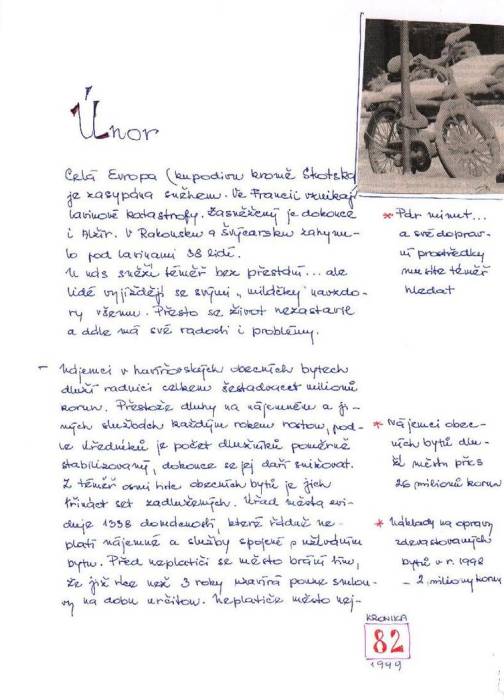 Únor
Celá Evropa (kupodivu kromě Skotska)
je zasypána sněhem. Ve Francii vznikají
lavinové katastrofy. Zasněžený je dokonce
i Alžír. V Rakousku a Švýcarsku zahynu-
lo pod lavinami 38 lidí.
U nás sněží téměř bez přestání... ale
lidé vyjíždějí se svými „miláčky" navzdo-
ry všemu. Přesto se život nezastavil
a dále má své radosti i problémy.
* Pár minut...
a své doprav-
ní prostředky
musíte téměř
hledat
- Nájemci v havířovských obecních bytech
dluží radnici celkem šestadvacet milionů
korun. Přestože dluhy na nájemném a ji-
ných službách každým rokem rostou, pod-
le úředníků je počet dlužníků poměrně
stabilizovaný, dokonce se jej daří snižovat.
Z téměř osmi tisíc obecních bytů je jich
třináct set zadlužených. Úřad města evi-
duje 1338 domácností, které řádně ne-
platí nájemné a služby spojené s užíváním
bytu. Před neplatiči se město brání tím,
že již více než 3 roky uzavírá pouze smlou-
vy na dobu určitou. Neplatiče město nej-
* Nájemci obec-
ních bytů dlu-
ží městu přes
26 milionů korun
* Náklady na opravy
zdevastovaných
bytů v r. 1998
- 2 miliony korun
KRONIKA
82
1999